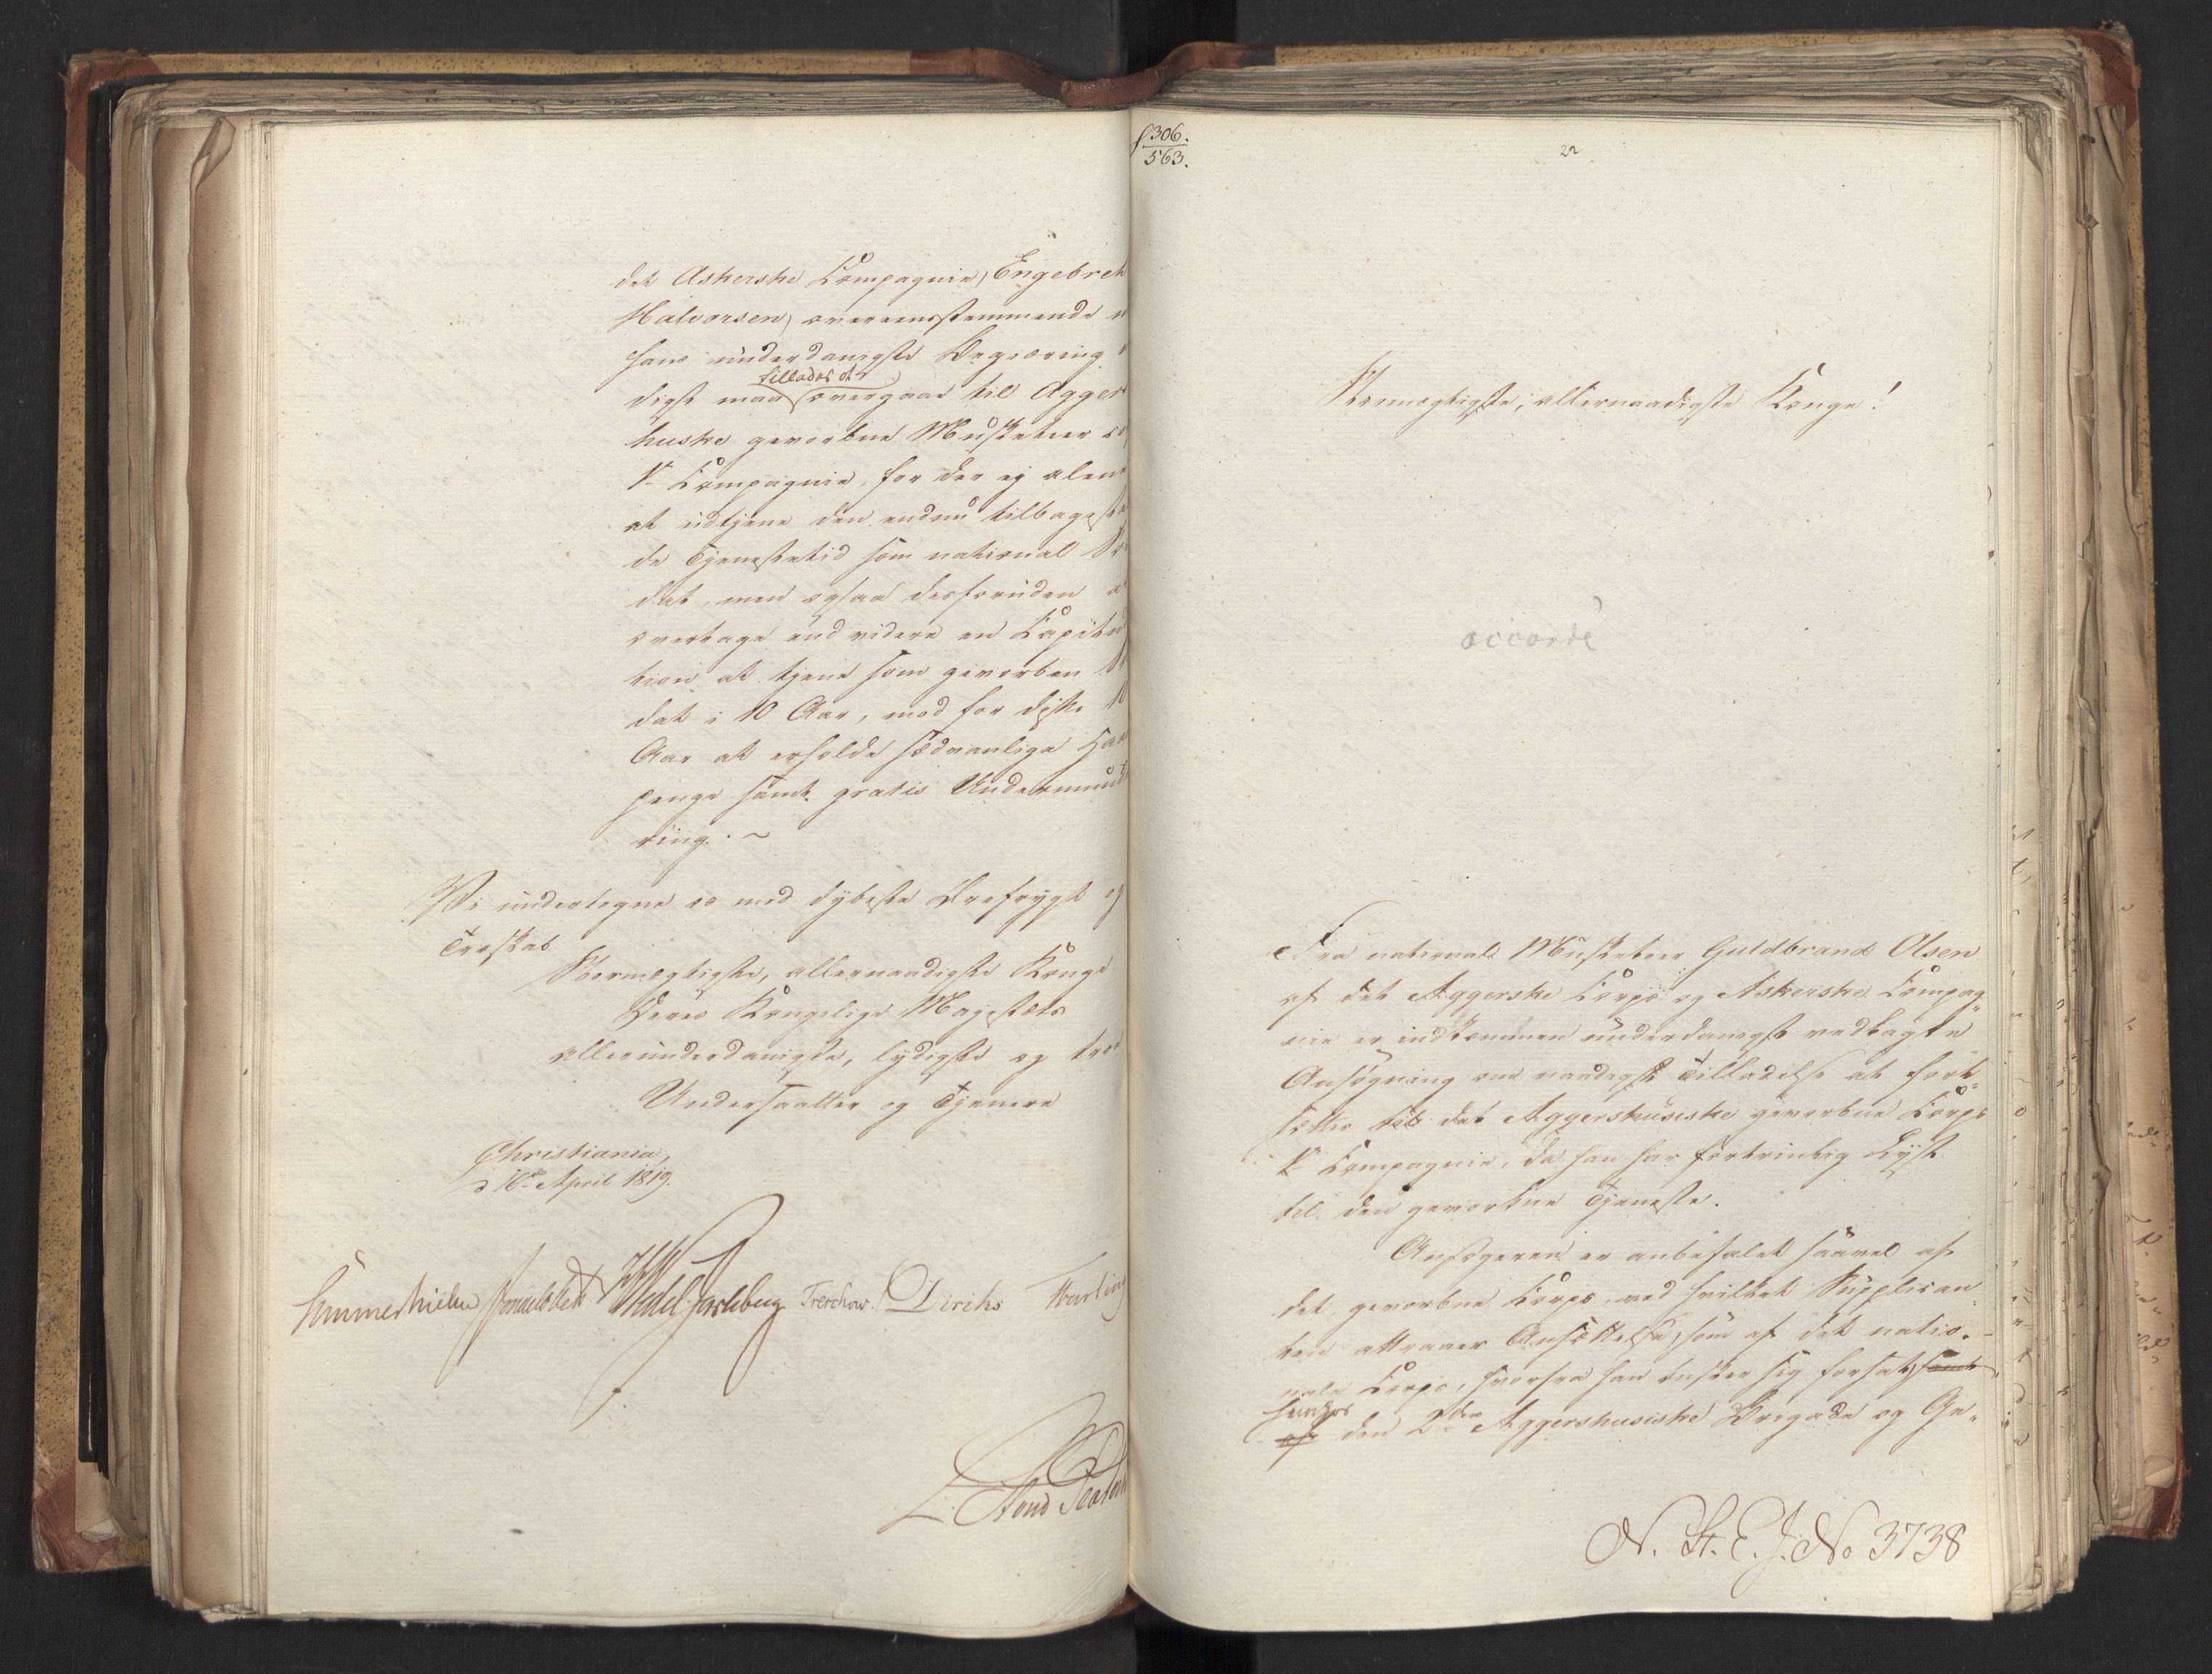 det Askerske Compagnie, Engebret
Halvorsen, overeensstemmende
hans underdanigste Begiæring
tillades at
digst maa overgaae til Agger
huske gevorbne Musketeer
1ste Compagnie, for der ej alene
at udtjene den endnu tilbagestaa
de Tjenestetid som national Sol
dat, men ogsaa desforuden
overtage end videre en Capitula
tion at tjene som gevorben Sol
dat i 10 Aar, mod for disse 10
Aar at erholde sædvanlige Haand
penge samt gratis Undermunde
ring. ~
Vi undertegne os med dybeste Ærefrygt og
Troskab
Stormægtigste, allernaadigste Konge
Deres Kongelige Majestæts
allerunderdanigste, lydigste og troe
Undersaatter og Tjenere
Christiania,
d 16de April 1819.
Sommerhielm Wedel Jarlsberg Treschow. Diriks
306.
563.
22
Stormægtigste, allernaadigste Konge!
accordé
Fra national Musketeer Guldbrand Olsen
af det Aggerske Corps og Askerske Compag-
nie er indkommen underdanigst vedlagte
Ansøgning om naadigst Tilladelse at fort-
sættes til det Aggershusiske gevorbne Corps
1ste Compagnie, da han har fortrinlig Lyst
til den gevorbne Tjeneste.
Ansøgeren er anbefalet saavel af
det gevorbne Corps, ved hvilket Supplican-
ten attraaer Ansættelse, som af det natio-
nale Corps, hvorfra han ønsker sig forsat, samt
af den 2den Aggershusiske Brigade og Ge-
N. St. E. J. No 3738